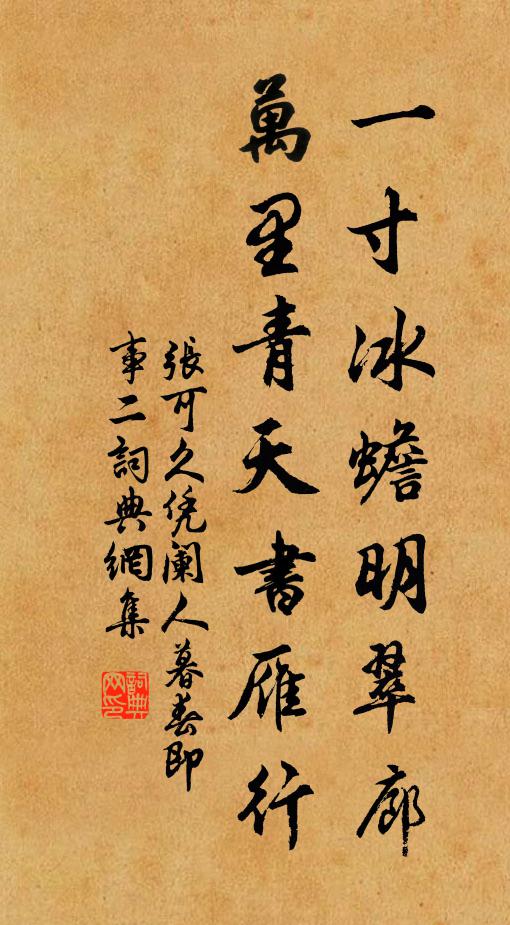 一寸冰蟾明翠廊
萬里青天書雁行
張可久凭闌人暮春即
事二詞典網集
詞典网印